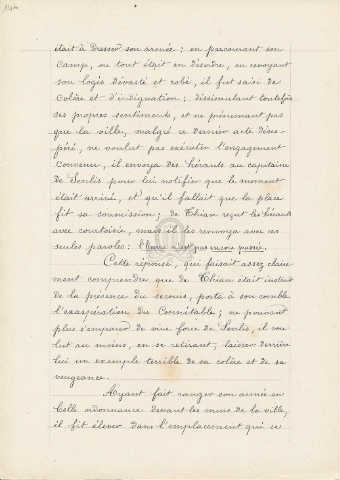 était à dresser son armée ; en parcourant son
camp, où tout était en désordre, en revoyant
son logis dévasté et robé, il fut saisi de
colère et d'indignation ; dissimulant toutefois
ses propres sentiments, et ne présumant pas
que la ville, malgré ce dernier acte déses-
péré, ne voulut pas exécuter l'engagement
convenu, il envoya des hérauts au capitaine
de Senlis pour lui notifier que le moment
était arrivé, et qu'il fallait que la place
fit sa commission ; de Thian reçut les hérauts
avec courtoisie, mais il les renvoya avec ces
seules paroles : l'heure n'est pas encore passée.
Cette réponse, que faisait assez claire
ment comprendre que de Thian était instruit
de la présence du secours, porta à son comble
l'exaspération du Connétable ; ne pouvant
plus s'emparer de vive force de Senlis, il vou
lut au moins, en se retirant, laisser derrière
lui un exemple terrible de sa colère et de sa
vengeance.
Ayant fait ranger son armée en
belle ordonnance devant les murs de la ville,
il fit élever dans l'emplacement qui se